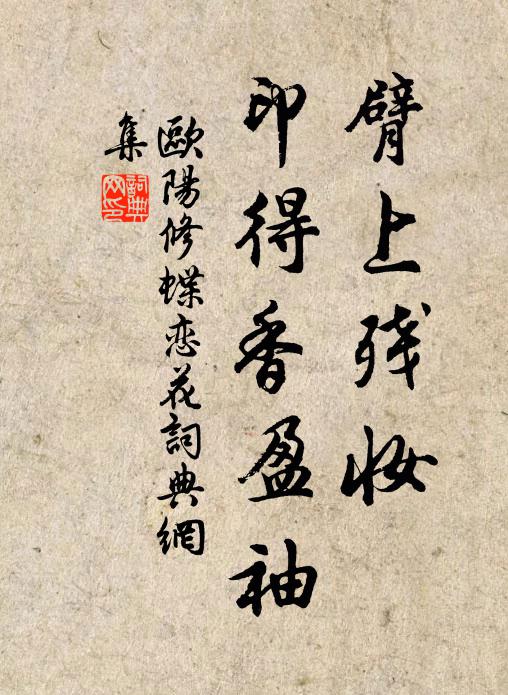 臂上残妆
印得香盈袖
歐陽修蝶恋花詞典網
集
詞典
网印